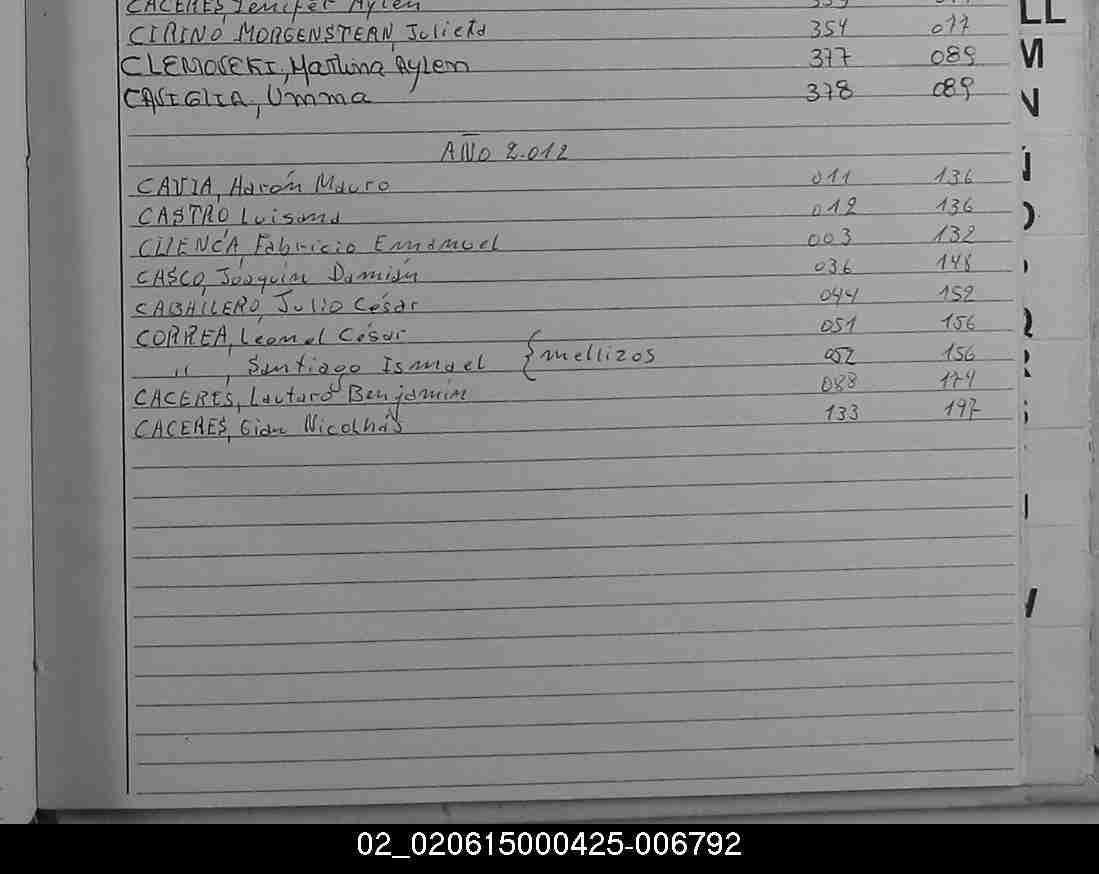 CACERES, Jenifer Aylen
CIRINO MORGENSTERN, Julieta 354 077
CLEMOSEKI, Martina Aylen 377 089
CASIGLIA, Umma 378 089
AÑO 2.012
CAVIA, Harón Mauro 011 136
CASTRO Luisana 012 136
Fabricio Emmanuel 003 132
CASCO, Joaquín Damián 036 148
CABALLERO, Julio César 044 152
CORREA, Leonel César 051 156
" , Santiago Ismael { mellizos 052 156
CACERES, Lautaro Benjamín 088 174
CACERES, Gian Nicolhás 133 197
LL
M
N
02_020615000425-006792